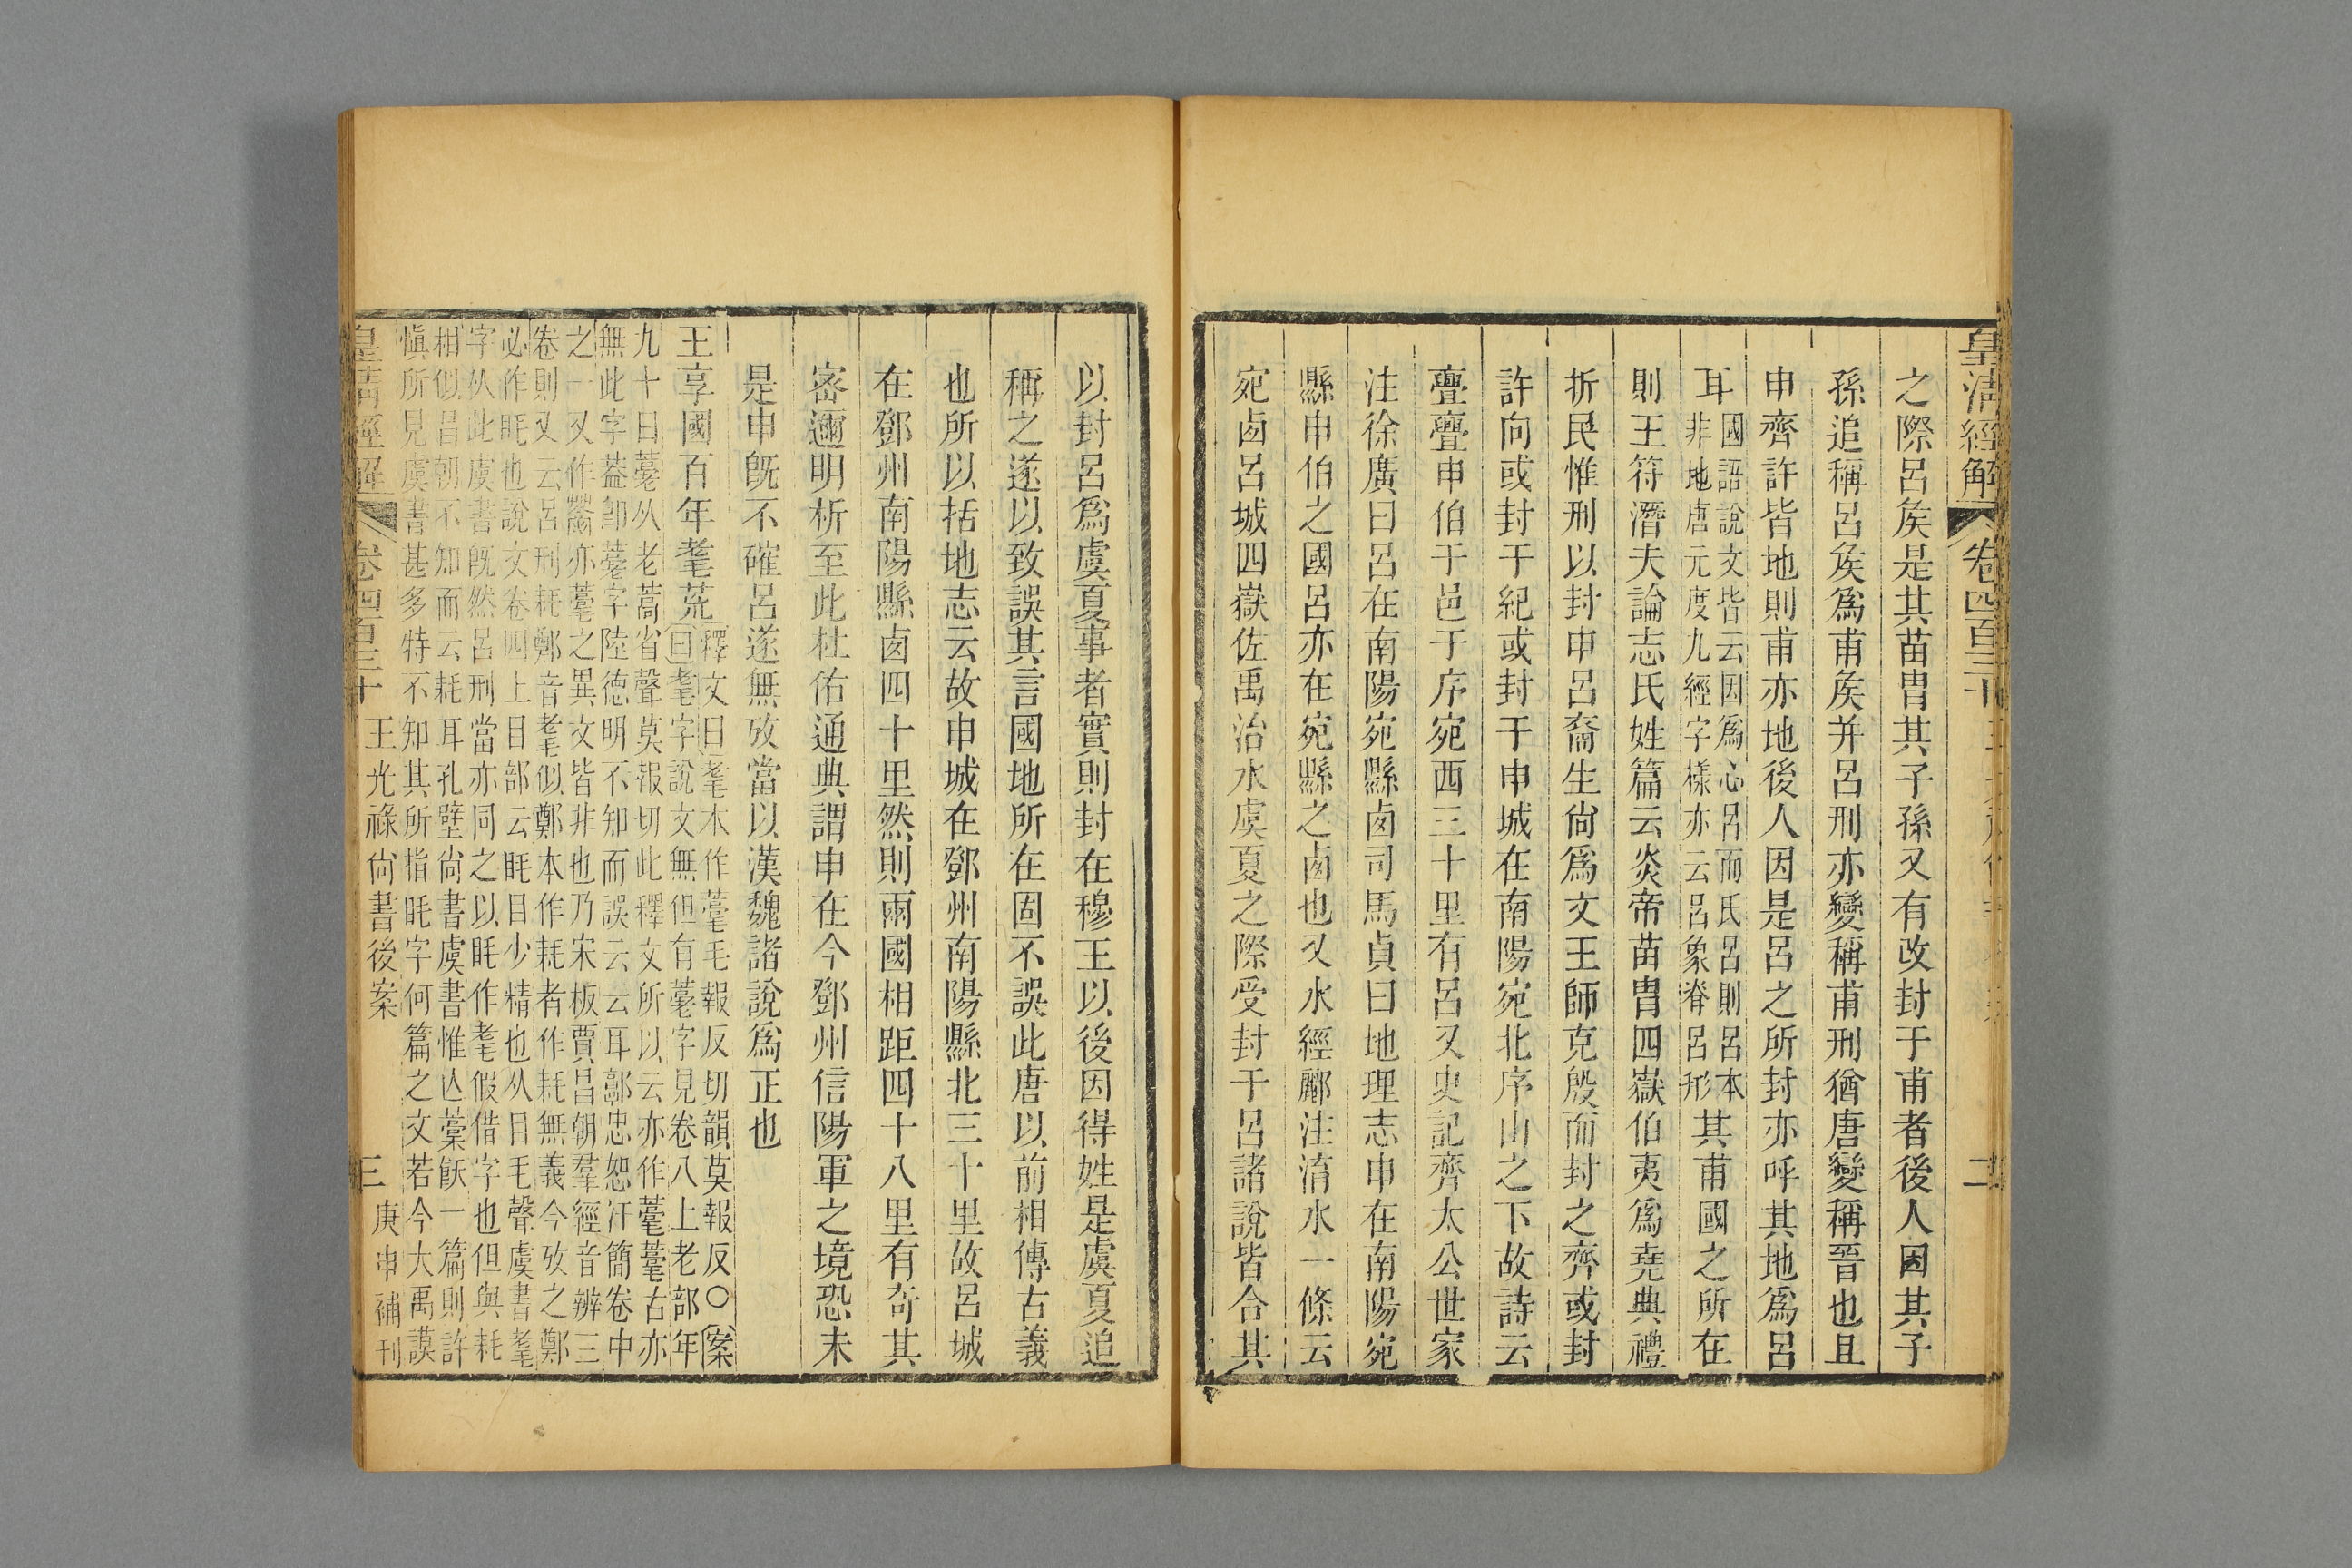 皇清經解
卷四百三十
二
之際呂矦是其苗冑其子孫又有改封于甫者後人因其子
孫追稱呂矦爲甫矦并呂刑亦變稱甫刑猶唐變稱晉也且
申齊許皆地則甫亦地後人因是呂之所封亦呼其地爲呂
耳
國語說文皆云因爲心呂而氏呂則呂本
非地唐元度九經字樣亦云呂象脊呂形
其甫國之所在
則王符潛夫論志氏姓篇云炎帝苗冑四嶽伯夷爲堯典禮
折民惟刑以封申呂裔生尙爲文王師克殷而封之齊或封
許向或封于紀或封于申城在南陽宛北序山之下故詩云
亹亹申伯于邑于序宛西三十里有呂又史記齊太公世家
注徐廣曰呂在南陽宛縣卥司馬貞曰地理志申在南陽宛
縣申伯之國呂亦在宛縣之卥也又水經酈注淯水一條云
宛卥呂城四嶽佐禹治水虞夏之際受封于呂諸說皆合其
以封呂爲虞夏事者實則封在穆王以後因得姓是虞夏追
稱之遂以致誤其言國地所在固不誤此唐以前相傳古義
也所以括地志云故申城在鄧州南陽縣北三十里故呂城
在鄧州南陽縣卥四十里然則兩國相距四十八里有奇其
宻邇明析至此杜佑通典謂申在今鄧州信陽軍之境恐未
是申旣不確呂遂無攷當以漢魏諸說爲正也
王享國百年耄荒
釋文曰耄本作薹毛報反切韻莫報反○案
曰耄字說文無但有薹字見卷八上老部年
九十曰薹从老蒿省聲莫報切此釋文所以云亦作薹薹古亦
無此字葢卽薹字陸德明不知而誤云云耳郭忠恕汗簡卷中
之一又作㲠亦薹之異文皆非也乃宋板賈昌朝羣經音辨三
卷則又云呂刑耗鄭音耄似鄭本作耗者作耗無義今攷之鄭
必作眊也說文卷四上目部云眊目少精也从目毛聲虞書耄
字从此虞書旣然呂刑當亦同之以眊作耄假借字也但與耗
相似昌朝不知而云耗耳孔壁尙書虞書惟亾槀飫一篇則許
愼所見虞書甚多特不知其所指眊字何篇之文若今大禹謨
皇清經解
卷四百三十
王光祿尙書後案
三
庚申補刊